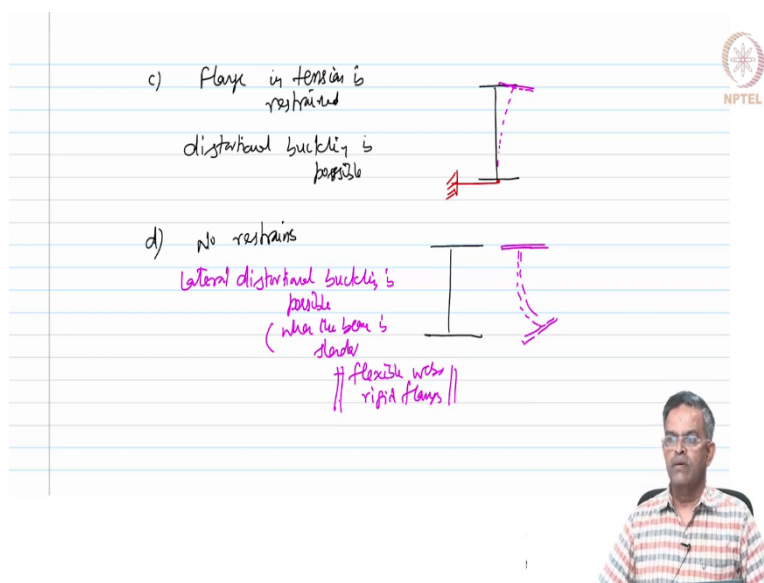 c) Flange in tension is
restrained
distortional buckling is
possible
NPTEL
d) No restrains
Lateral distortional buckling is
possible
(when the beam is
slender
|| flexible webs
rigid flanges ||